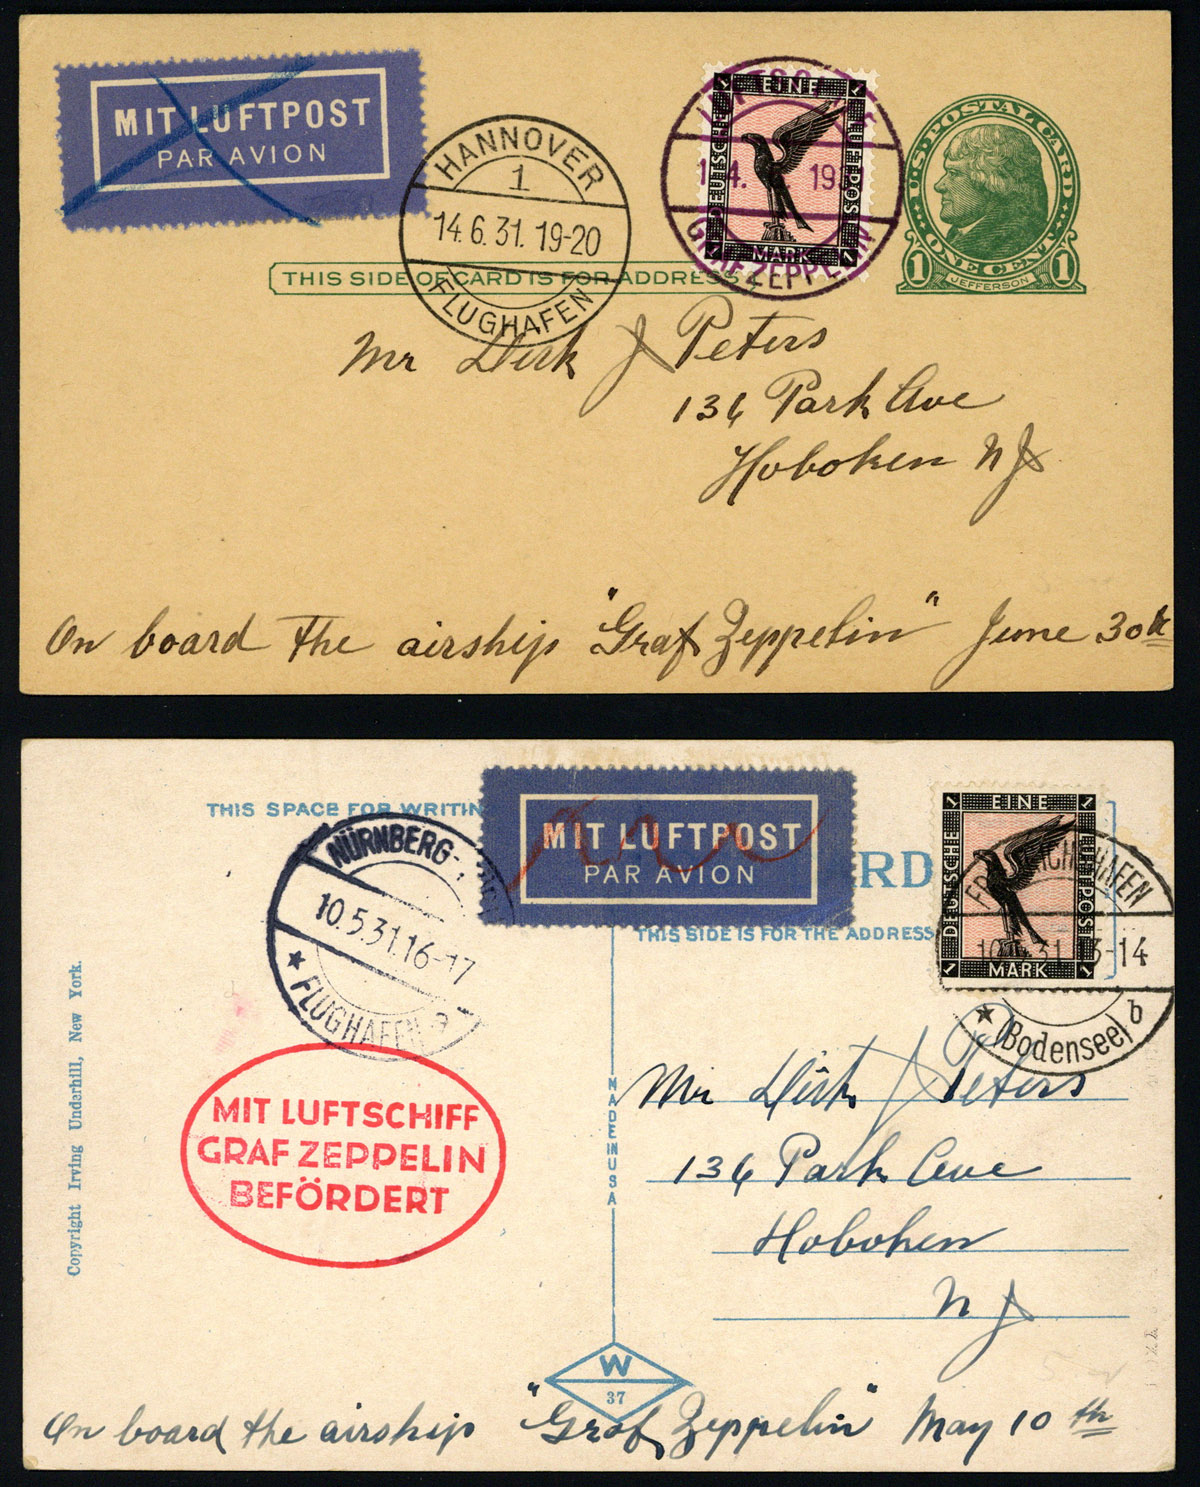 MIT LUFTPOST
PAR AVION
HANNOVER
1
14.6.31. 19-20
FLUGHAFEN
EINE
DEUTSCHE
FLUGPOST
MARK
1 1 1 1
GRAF ZEPPELIN
U.S. POSTAL CARD
ONE CENT
1 JEFFERSON 1
THIS SIDE OF CARD IS FOR ADDRESS
Mr Dirk J Peters
136 Park Ave
Hoboken N J
On board the airship "Graf Zeppelin" June 30th
THIS SPACE FOR WRITIN
MIT LUFTPOST
PAR AVION
RD
THIS SIDE IS FOR THE ADDRESS
NÜRNBERG-
10.5.31.16-17
FLUGHAFEN a
EINE
DEUTSCHE
FLUGPOST
MARK
1 1 1 1
FRIEDRICHSHAFEN
31 13-14
(Bodensee) b
MIT LUFTSCHIFF
GRAF ZEPPELIN
BEFÖRDERT
Copyright Irving Underhill, New York.
MADE IN USA
Mr Dirk J Peters
136 Park Ave
Hoboken
N J
W
37
On board the airship "Graf Zeppelin" May 10th